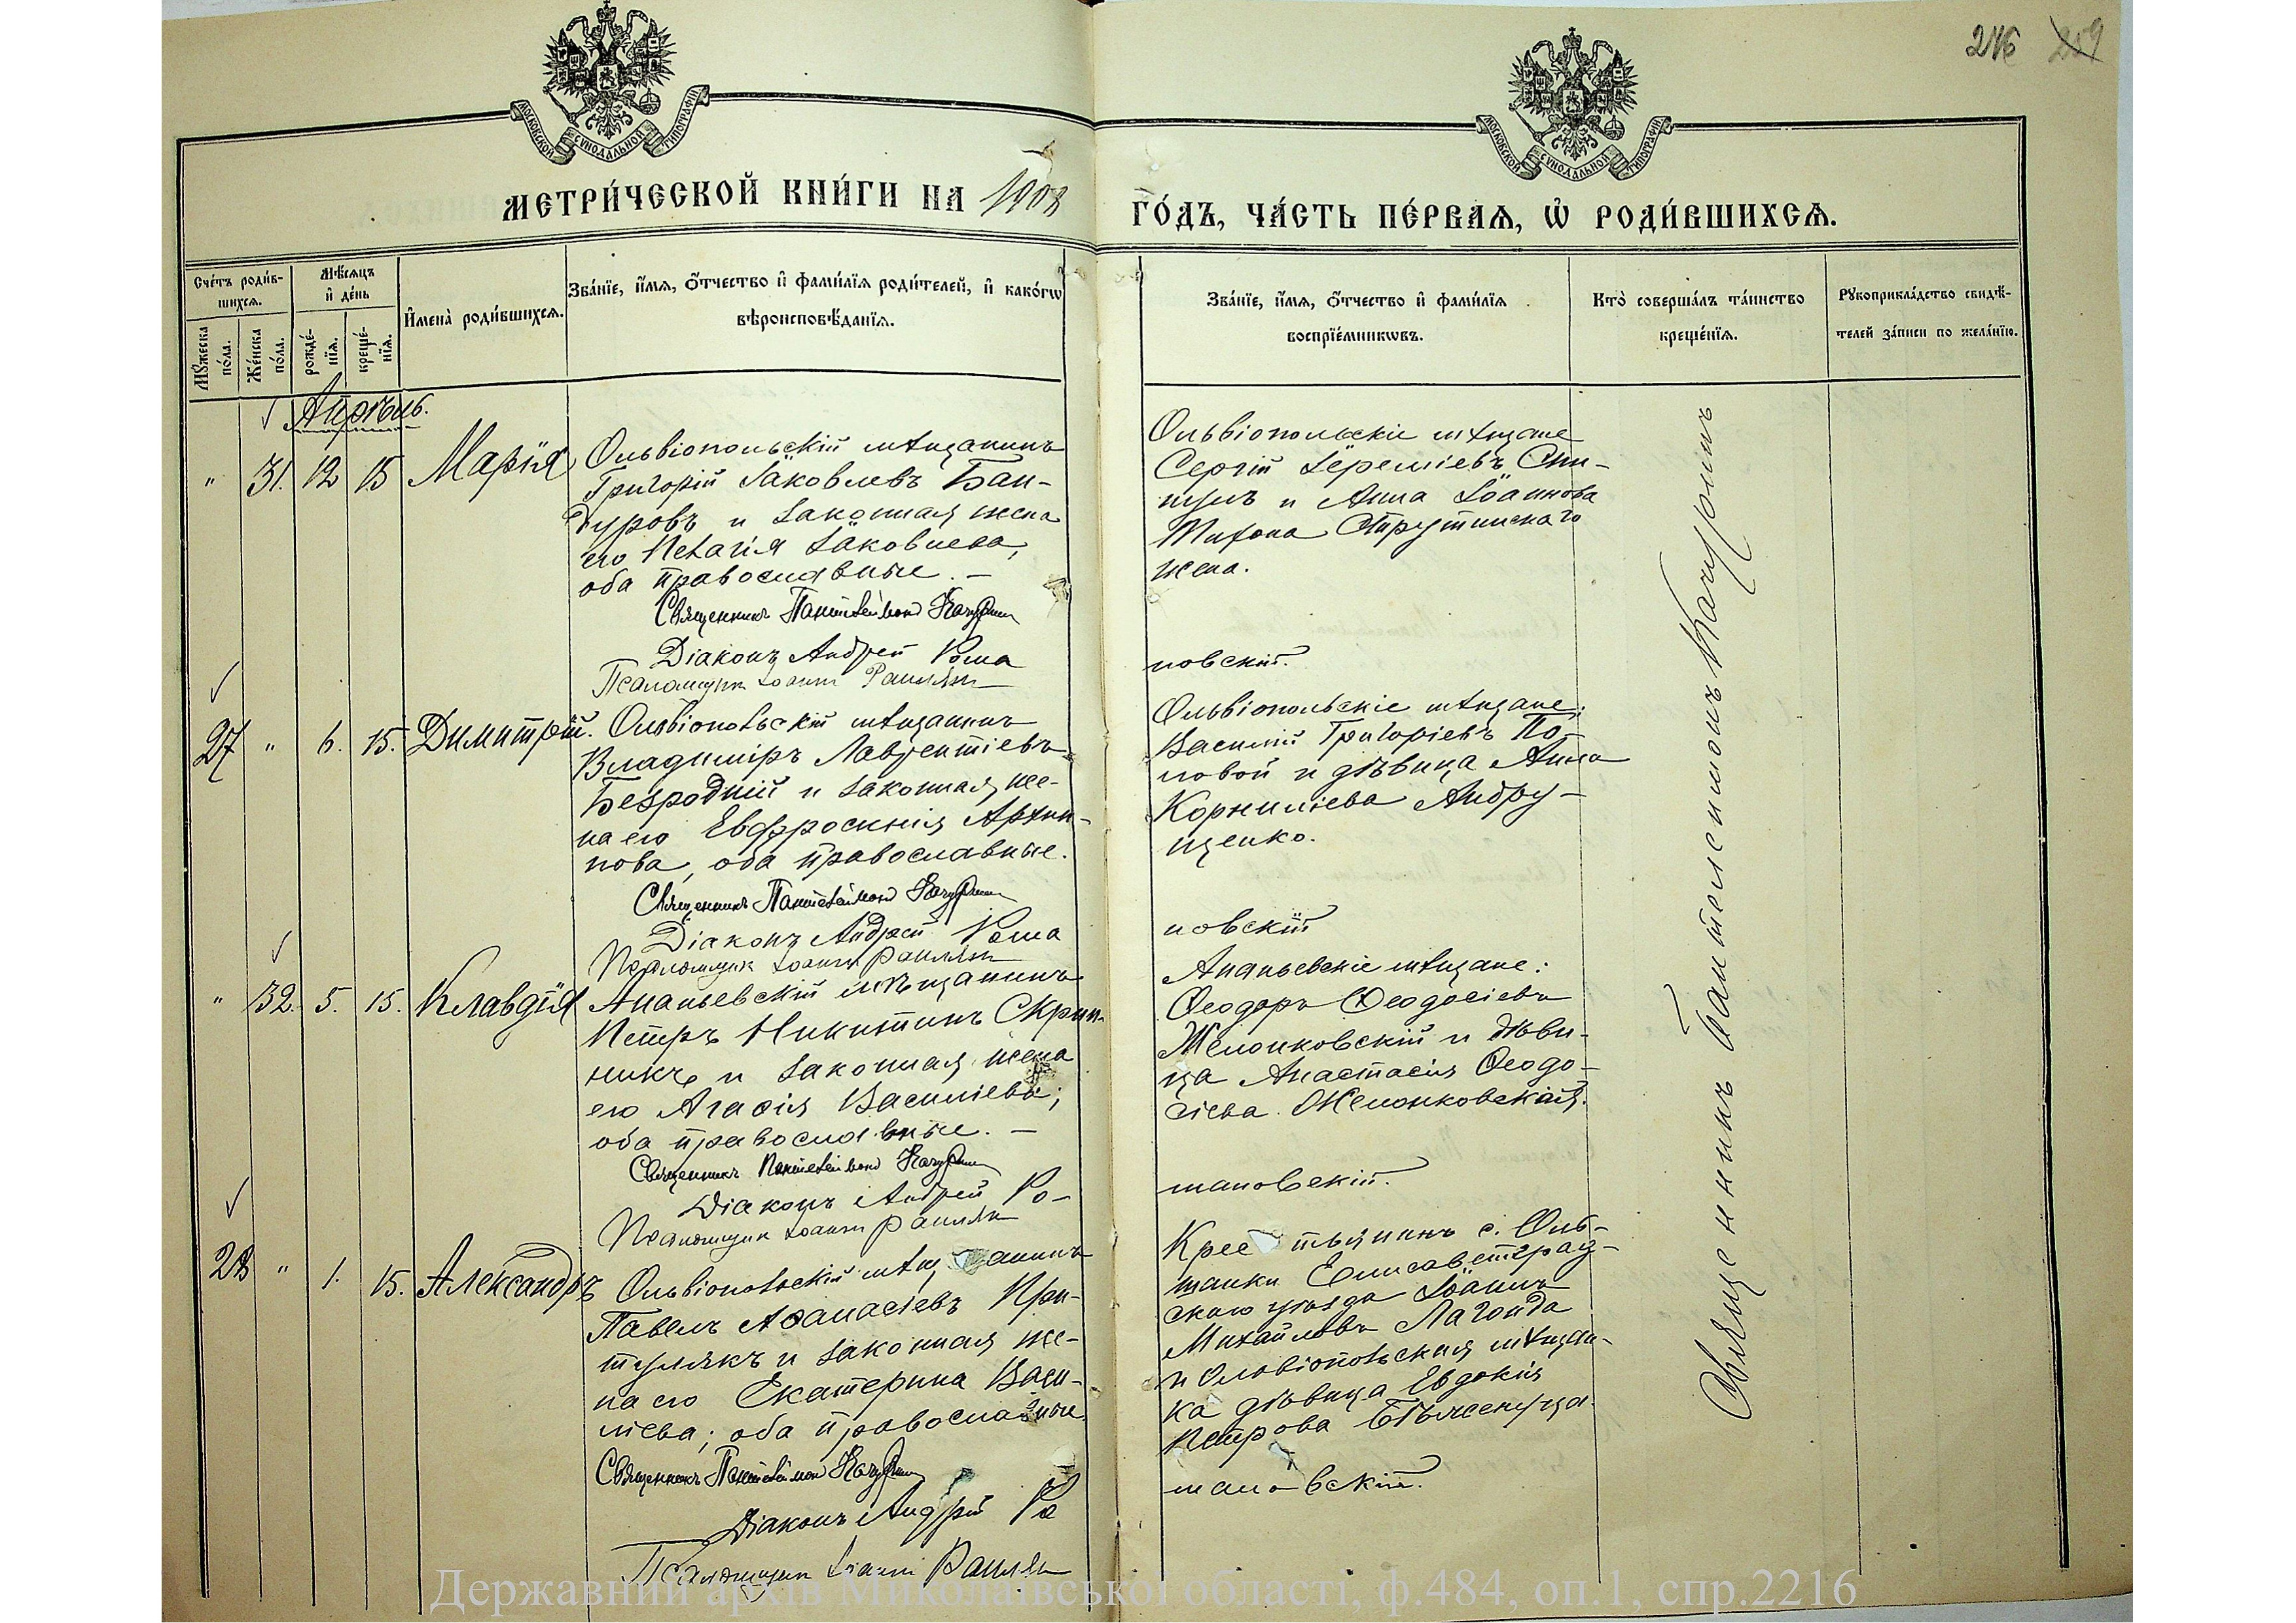 246 259
МОСКОВСКОЙ СѴНОДАЛЬНОЙ ТИПОГРАФІИ
МОСКОВСКОЙ СѴНОДАЛЬНОЙ ТИПОГРАФІИ
МЕТРИ́ЧЕСКОЙ КНИ́ГИ НА 1908
ГО́ДЪ, ЧА́СТЬ ПЕ́РВАѦ, Ѡ҆ РОДИ́ВШИХСѦ.
Сче́тъ роди́в-
шихсѧ.
Мꙋ́жеска
по́ла.
Же́нска
по́ла.
Мѣ́сѧцъ
и҆ де́нь
рожде́-
нїѧ.
креще́-
нїѧ.
И҆мена̀ роди́вшихсѧ.
Зва́нїе, и҆́мѧ, ѻ҆́тчество и҆ фами́лїѧ роди́телей, и҆ како́гѡ
вѣроисповѣ́данїѧ.
Зва́нїе, и҆́мѧ, ѻ҆́тчество и҆ фами́лїѧ
воспрїе́мникѡвъ.
Кто̀ соверша́лъ та́инство
креще́нїѧ.
Рꙋкоприкла́дство свидѣ́-
телей за́писи по жела́нїю.
Апрѣль.
" 31. 12 15 Марія
Ольвіопольскій мѣщанинъ
Григорій Іаковлевъ Бан-
дуровъ и законная жена
его Пелагія Іаковлева,
оба православные. —
Священникъ Пантелеймонъ
Діаконъ Андрей Рома
Псаломщикъ Іоаннъ
Ольвіопольскіе мѣщане
Сергій Іереміевъ Спи-
и Анна Іоаннова
Тихона Струтинскаго
жена.
новскій.
27 " 6. 15. Димитрій.
Ольвіопольскій мѣщанинъ
Владиміръ Лаврентіевъ
Безродній и законная же-
на его Евфросинія Архип-
пова, оба православные.
Священникъ Пантелеймонъ
Діаконъ Андрей Рома
Псаломщикъ Іоаннъ
Ольвіопольскіе мѣщане:
Василій Григоріевъ По-
повой и дѣвица Анна
Корниліева Андру-
щенко.
новскій
" 32. 5. 15. Клавдія
Ананьевскій мѣщанинъ
Петръ Никитинъ Скрип-
никъ и законная жена
его Агафія Василіева;
оба православные. —
Священникъ Пантелеймонъ
Діаконъ Андрей Ро-
Псаломщикъ Іоаннъ
Ананьевскіе мѣщане:
Ѳеодоръ Ѳеодосіевъ
Желонковскій и дѣви-
ца Анастасія Ѳеодо-
сіева Желонковская.
мановскій.
28 " 1. 15. Александръ
Ольвіопольскій мѣщанинъ
Павелъ Аѳанасіевъ При-
тулякъ и законная же-
на его Екатерина Васи-
ліева; оба православные.
Священникъ Пантелеймонъ
Діаконъ Андрей Ро
Псаломщикъ Іоаннъ
Крестьянинъ с. Оль-
шанки Елисаветград-
скаго уѣзда Іоаннъ
Михайловъ Лагонда
и Ольвіопольская мѣщан-
ка дѣвица Евдокія
Петрова
мановскій.
Священникъ Пантелеимонъ
Державний архів Миколаївської області, ф.484, оп.1, спр.2216